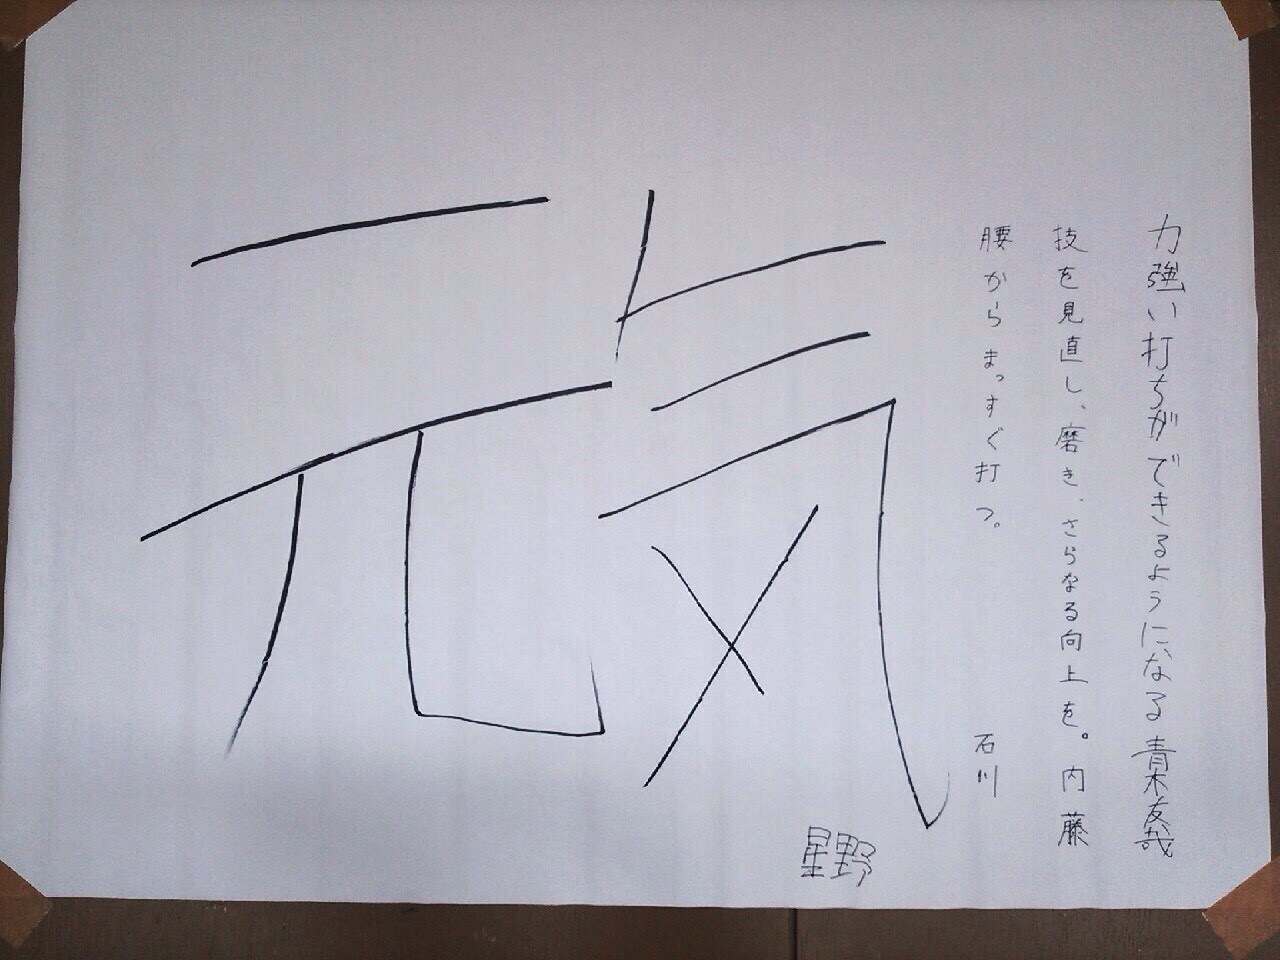 力強い打ちができるようになる 青木友哉
技を見直し、磨き、さらなる向上を。内藤
腰からまっすぐ打つ。 石川
元気
星野